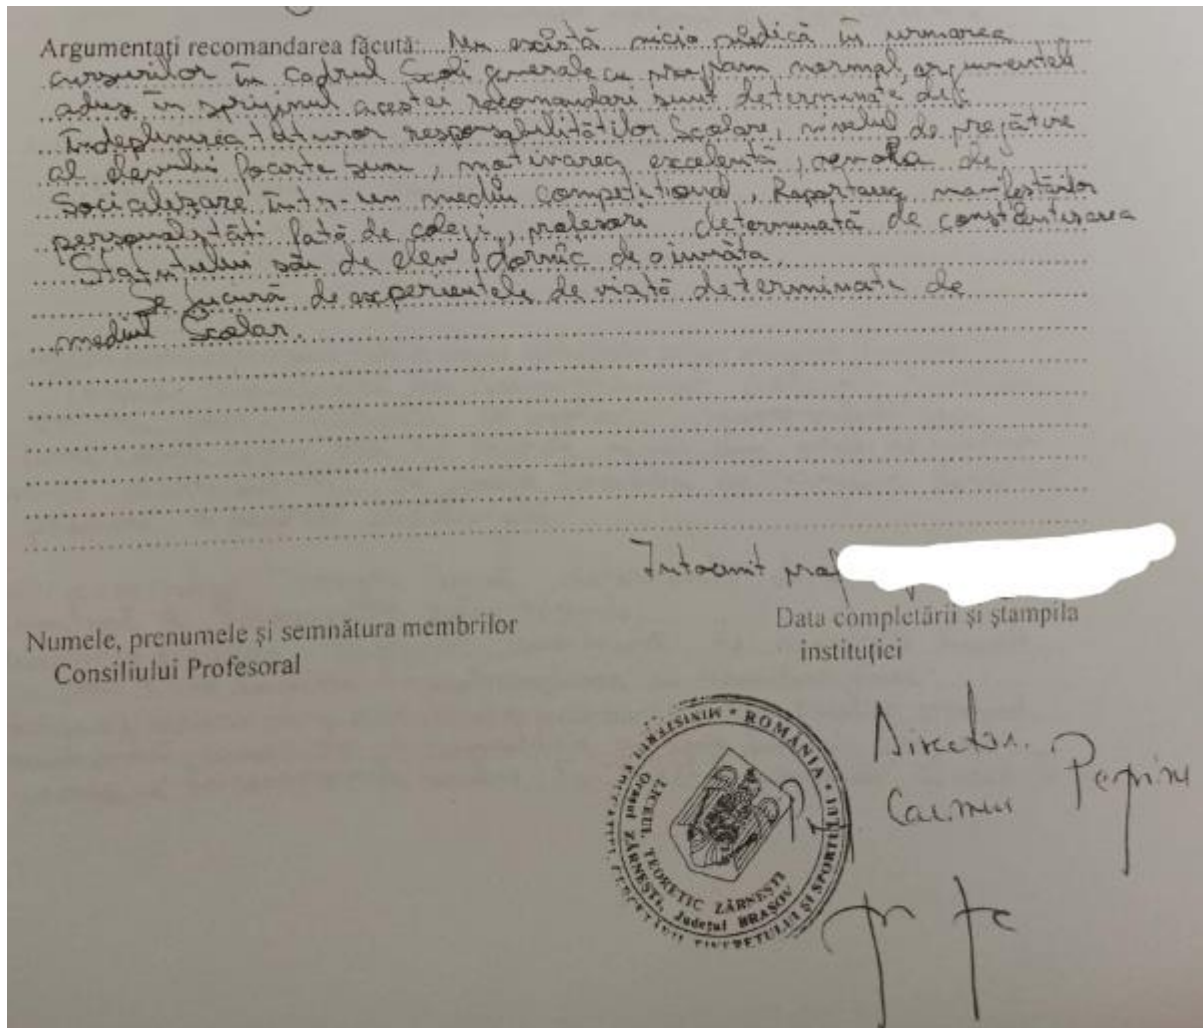 Argumentați recomandarea făcută: Nu există nicio piedică în urmarea
cursurilor în cadrul Scolii generale cu program normal, argumentele
aduse în sprijinul acestei recomandari sunt determinate de:
Îndeplinirea tuturor responsabilităților Scolare, nivelul de pregătire
al elevului foarte bun, motivarea excelentă, nevoia de
Socializare într-un mediu competitional, Raportarea manifestărilor
personalității față de colegi, profesori determinată de constientizarea
Statutului său de elev dornic de a învăta.
Se bucură de experientele de viată determinate de
mediul Scolar.
Intocmit prof
Numele, prenumele și semnătura membrilor
Consiliului Profesoral
Data completării și ștampila
instituției
Director.
Carmen
ROMÂNIA * MINISTERUL EDUCAȚIEI CERCETĂRII TINERETULUI ȘI SPORTULUI
LICEUL TEORETIC ZĂRNEȘTI
Orașul ZĂRNEȘTI, Județul BRAȘOV